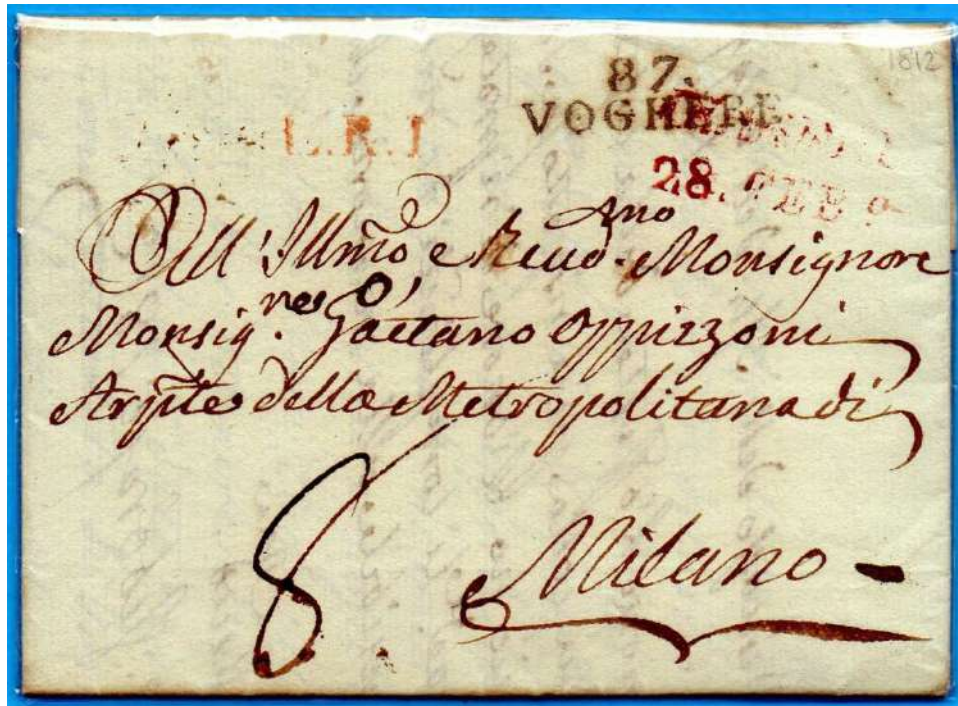 1812
87.
VOGHERE
L.R.I
28. FEB
All' Illmõ e Reud.mo Monsignore
Monsig.re Gaetano Oppizzoni
Arp̃te della Metropolitana di
8 Milano